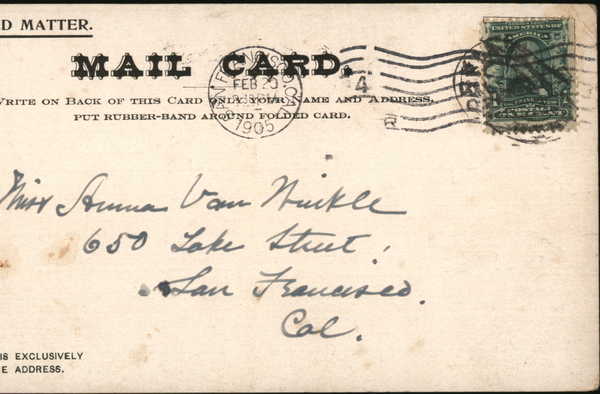 D MATTER.
MAIL CARD.
WRITE ON BACK OF THIS CARD ONLY YOUR NAME AND ADDRESS,
PUT RUBBER-BAND AROUND FOLDED CARD.
FEB 20
1905
4
UNITED STATES OF
AMERICA
POSTAGE
Miss Anna Van Winkle
650 Lake Street,
San Francisco.
Cal.
IS EXCLUSIVELY
E ADDRESS.